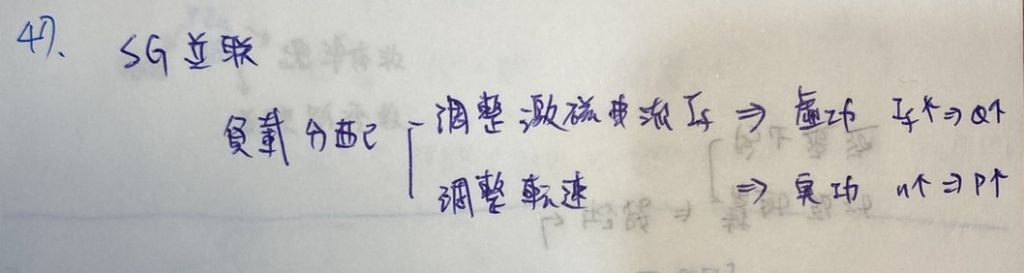 47. SG 並联
負載分配 調整激磁電流 If ⇒ 虛功 If↑⇒Q↑
調整転速 ⇒ 実功 n↑⇒P↑